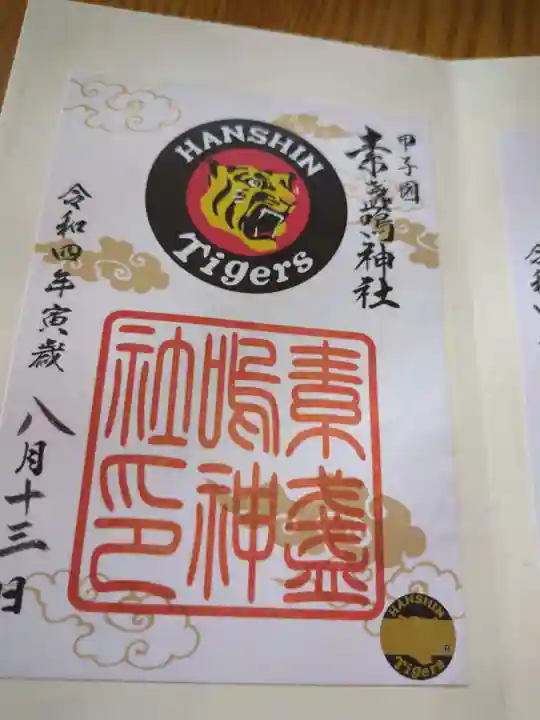 甲子園
素盞嗚神社
HANSHIN
Tigers
令和四年寅歳
八月十三日
素盞
嗚神
社印
HANSHIN
Tigers
R